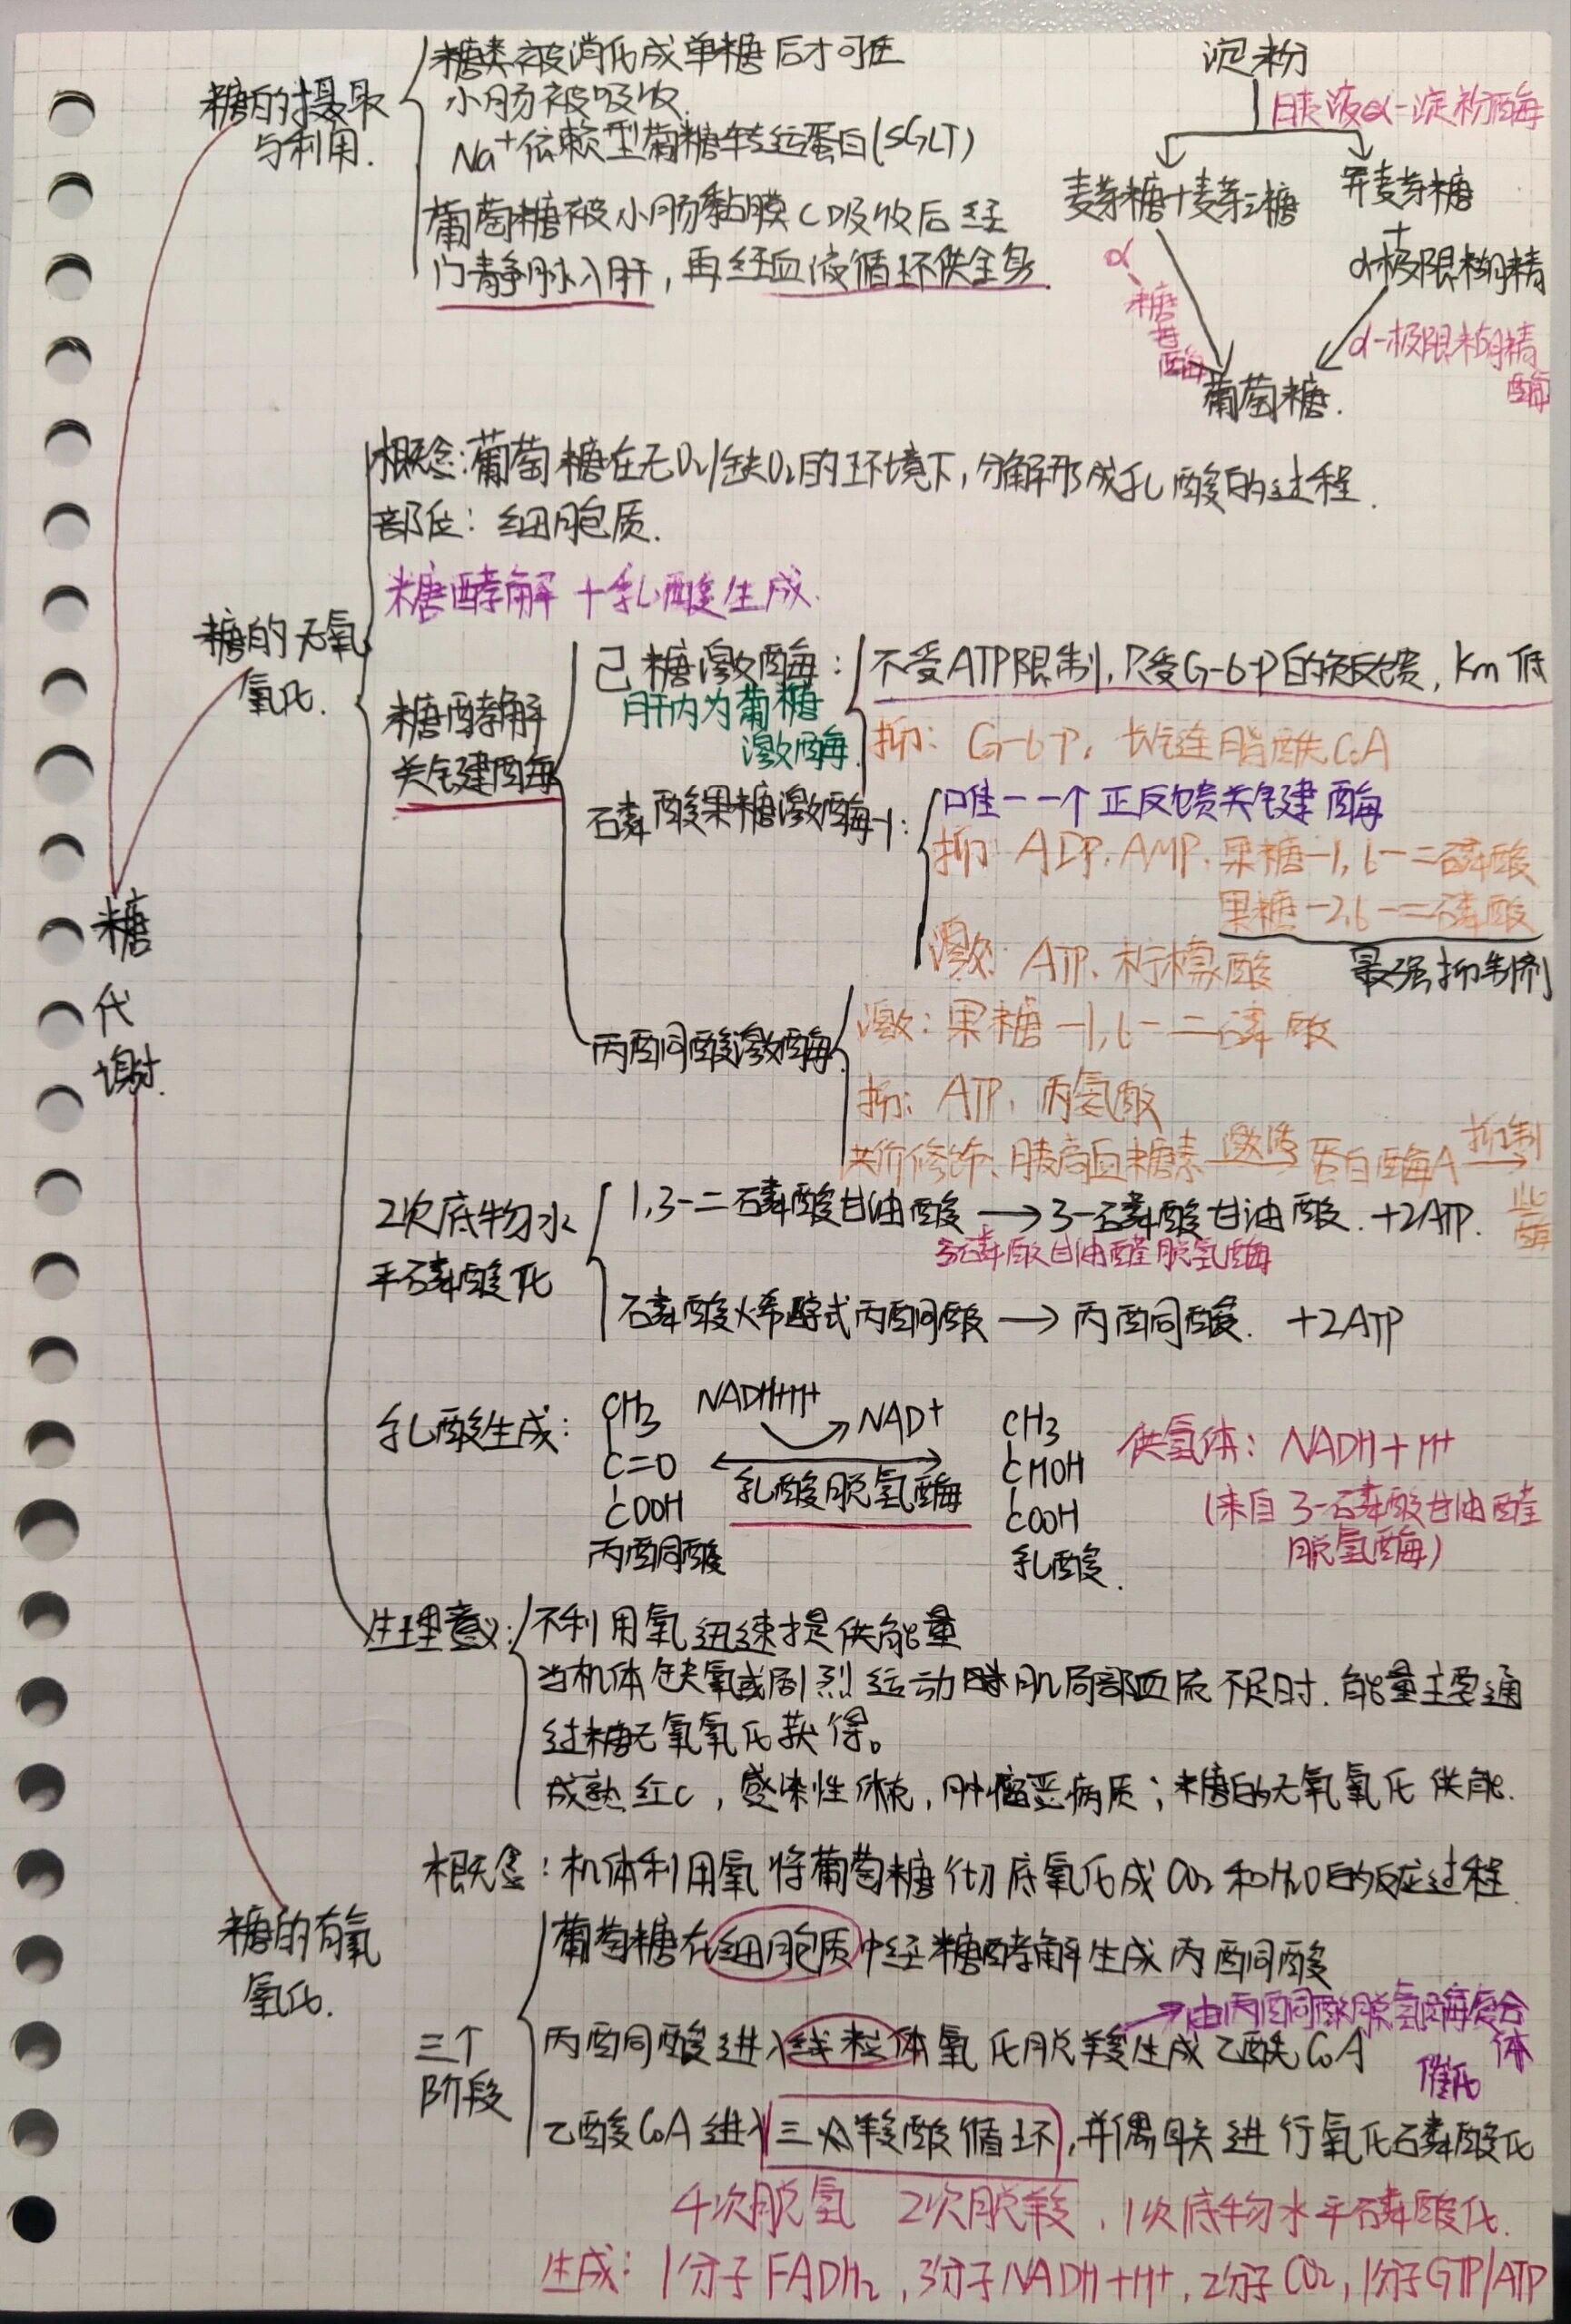 糖代谢
糖的摄取
与利用.
糖类被消化成单糖后才可在
小肠被吸收.
Na⁺依赖型葡糖转运蛋白(SGLT)
葡萄糖被小肠黏膜C吸收后经
门静脉入肝,再经血液循环供全身.
淀粉
胰液α-淀粉酶
麦芽糖+麦芽三糖
异麦芽糖
+
α-极限糊精
α-糖苷酶
α-极限糊精
酶
葡萄糖.
糖的无氧
氧化.
概念:葡萄糖在无O₂/缺O₂的环境下,分解形成乳酸的过程.
部位:细胞质.
糖酵解+乳酸生成.
糖酵解
关键酶
己糖激酶:
肝内为葡糖
激酶
不受ATP限制,只受G-6-P的负反馈,Km低
抑:G-6-P,长链脂酰CoA
磷酸果糖激酶-1:
唯一一个正反馈关键酶
抑:ADP、AMP、果糖-1,6-二磷酸
果糖-2,6-二磷酸
最强抑制剂
激:ATP、柠檬酸
丙酮酸激酶
激:果糖-1,6-二磷酸
抑:ATP、丙氨酸
共价修饰、胰高血糖素 激活→ 蛋白酶A 抑制→
此
酶
2次底物水
平磷酸化
1,3-二磷酸甘油酸→3-磷酸甘油酸.+2ATP.
3-磷酸甘油醛脱氢酶
磷酸烯醇式丙酮酸→丙酮酸. +2ATP
乳酸生成:
CH3
C=O
COOH
丙酮酸
NADH+H+
NAD+
乳酸脱氢酶
CH3
CHOH
COOH
乳酸.
供氢体:NADH+H+
(来自3-磷酸甘油醛
脱氢酶)
生理意义:
不利用氧迅速提供能量
当机体缺氧或剧烈运动时肌局部血流不足时.能量主要通
过糖无氧氧化获得。
成熟红C,感染性休克,肿瘤恶病质;糖的无氧氧化供能.
糖的有氧
氧化.
概念:机体利用氧将葡萄糖彻底氧化成CO₂和H₂O的反应过程
三个
阶段
葡萄糖在细胞质中经糖酵解生成丙酮酸
丙酮酸进入线粒体氧化脱羧生成乙酰CoA
→由丙酮酸脱氢酶复合
体
催化
乙酸CoA进入三羧酸循环,并偶联进行氧化磷酸化
4次脱氢 2次脱羧,1次底物水平磷酸化.
生成:1分子FADH₂,3分子NADH+H+,2分子CO₂,1分子GTP/ATP